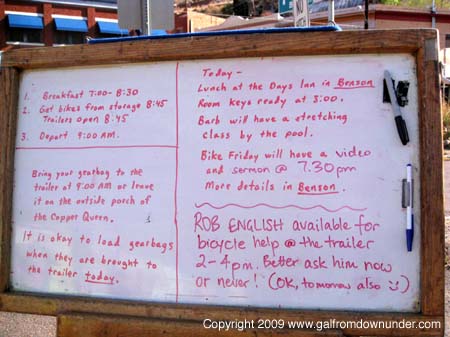 1. Breakfast 7:00-8:30
2. Get bikes from storage 8:45
Trailers open 8:45
3. Depart 9:00 AM.
Bring your gearbag to the
trailer at 9:00 AM or leave
it on the outside porch
of the Copper Queen.
It is okay to load gearbags
when they are brought to
the trailer today.
Today -
Lunch at the Days Inn in Benson
Room keys ready at 3:00.
Barb will have a stretching
class by the pool.
Bike Friday will have a video
and sermon @ 7.30pm
More details in Benson.
ROB ENGLISH available for
bicycle help @ the trailer
2-4pm. Better ask him now
or never! (OK, tomorrow also :)
Copyright 2009 www.galfromdownunder.com